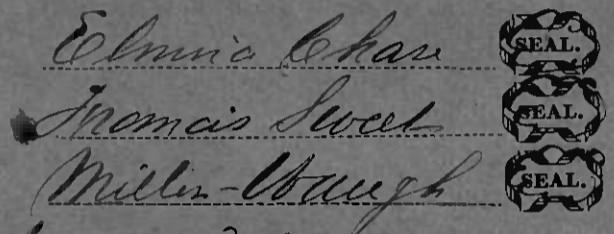 Elmina Chase SEAL.
Francis Sweet SEAL.
Miller Waugh SEAL.